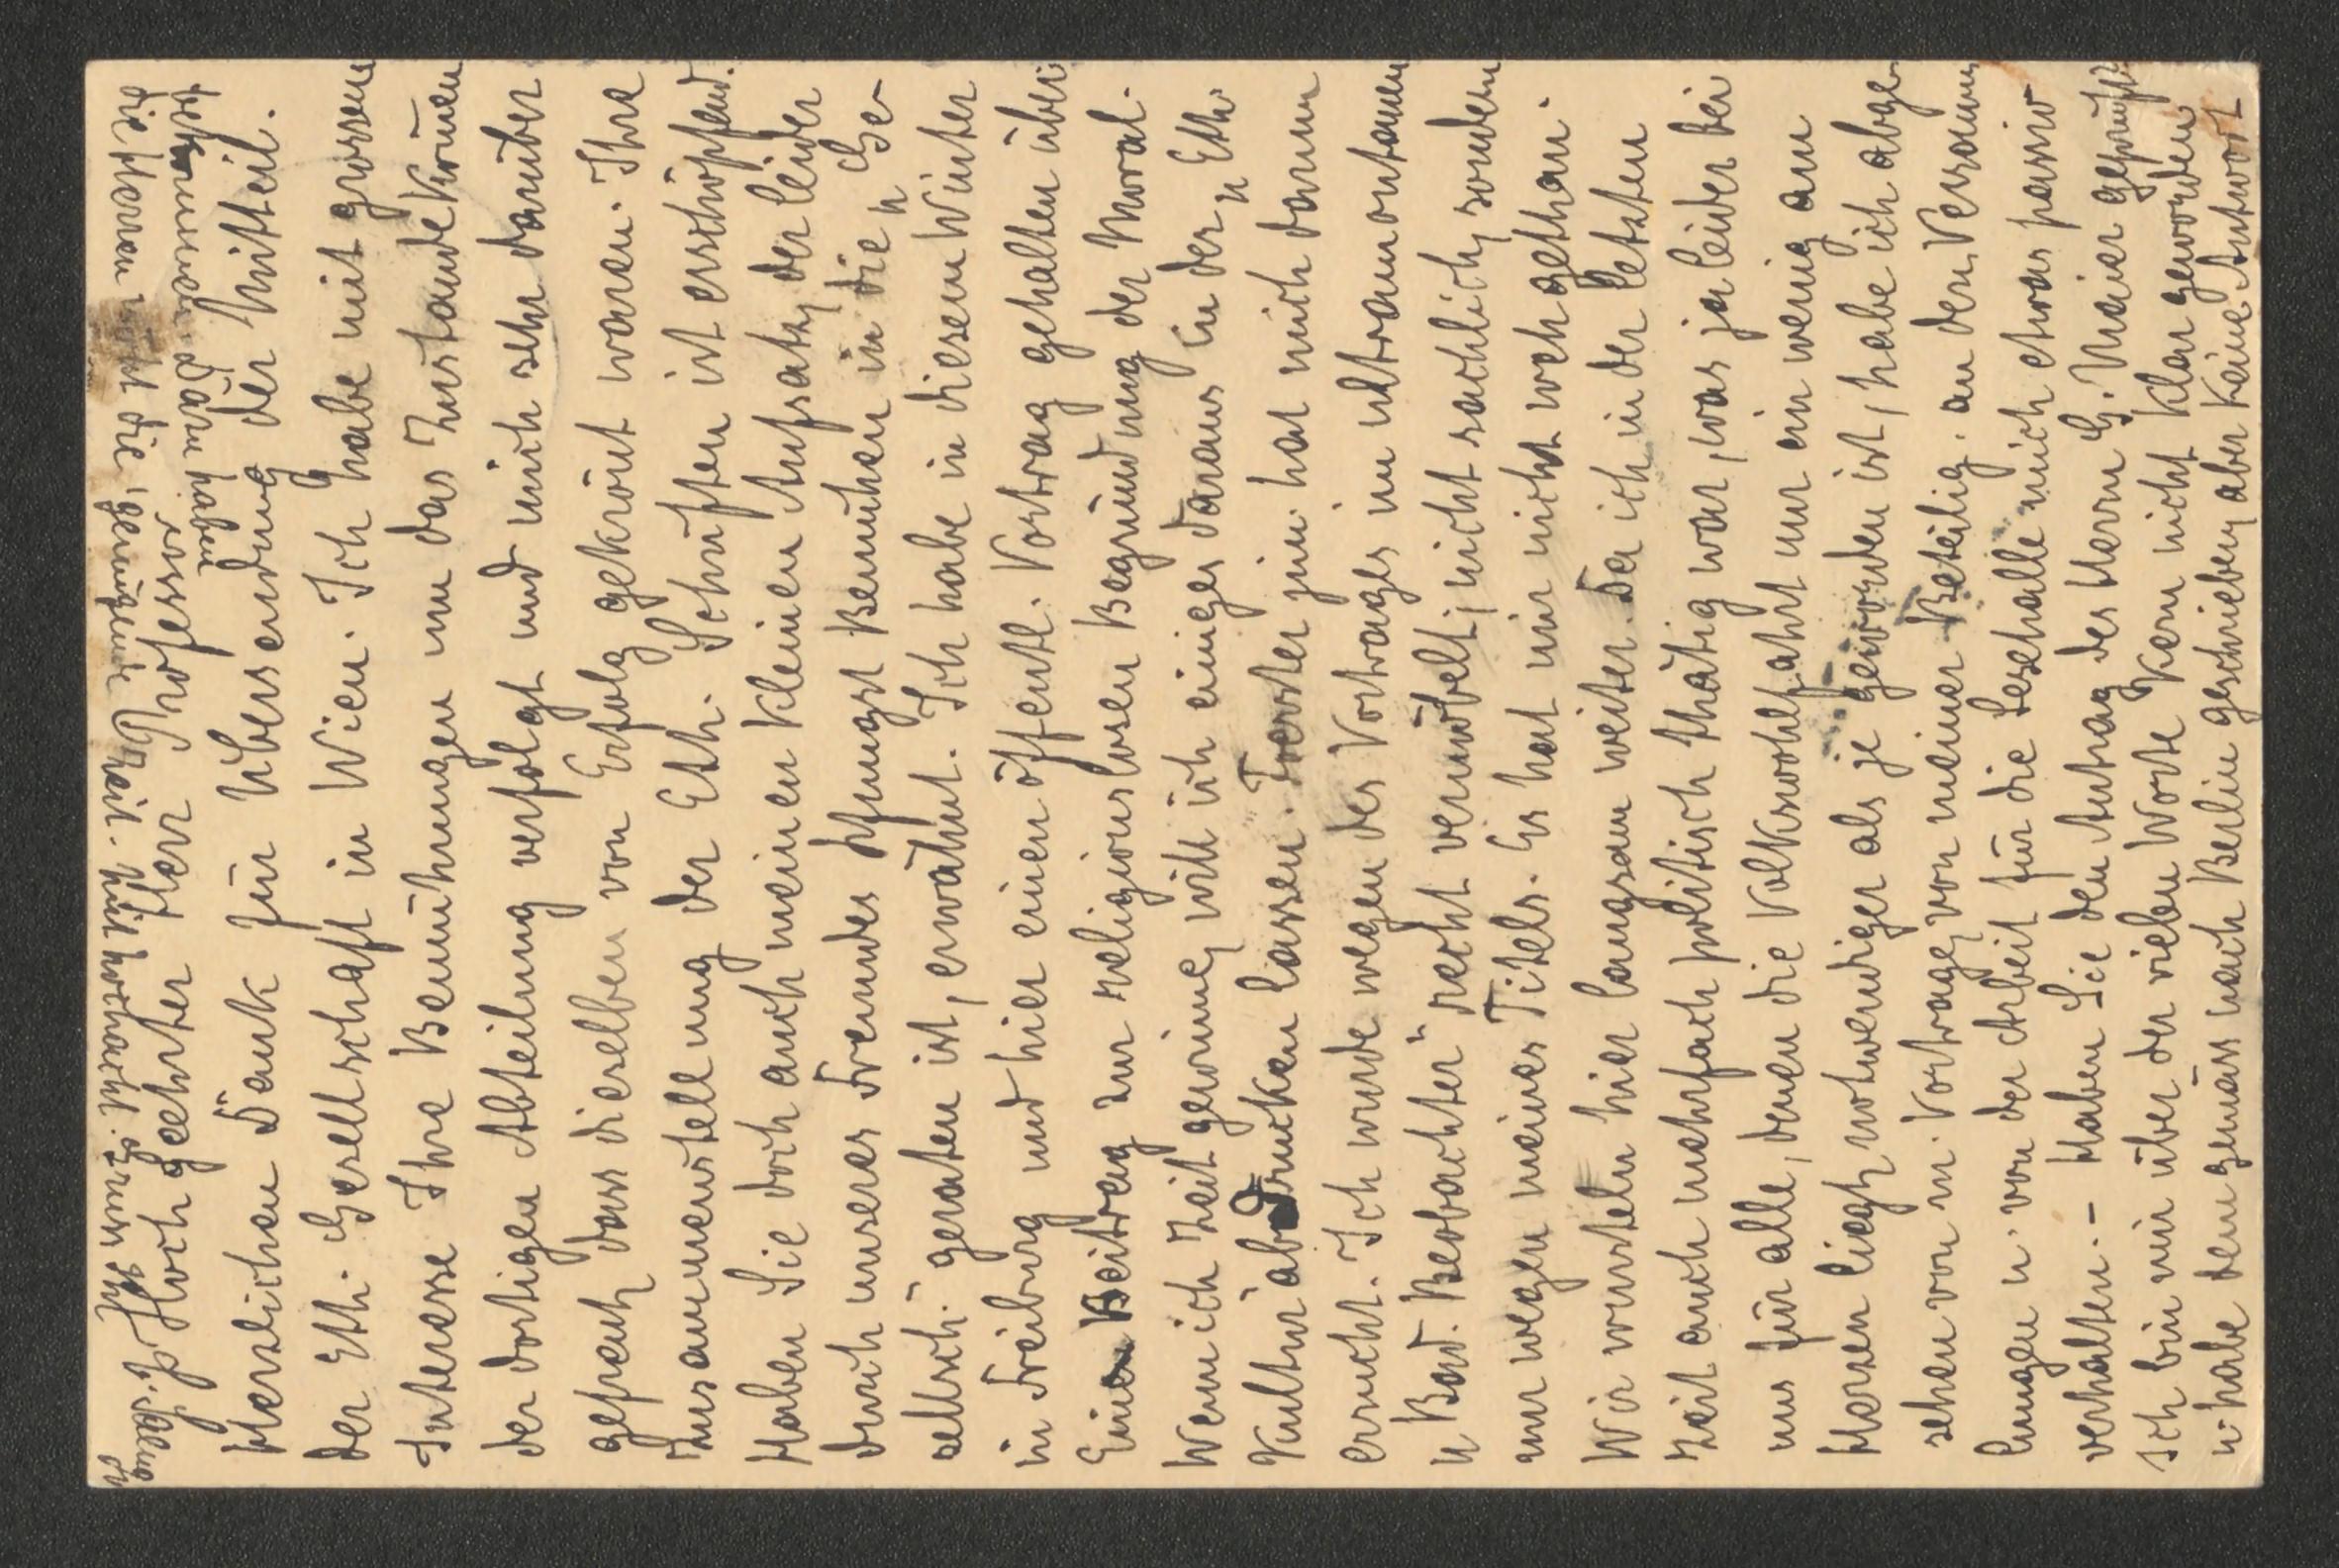 Hochgeehrter Herr Professor
Herzlichen Dank für Übersendung der Mitteil.
der Eth. Gesellschaft in Wien. Ich habe mit grossem
Interesse Ihre Bemühungen um das Zustandekommen
der dortigen Abteilung verfolgt und mich sehr darüber
gefreut, dass dieselben von Erfolg gekrönt waren. Ihre
Zusammenstellung der Eth. Schriften ist erschöpfend.
Haben Sie doch auch meinen kleinen Aufsatz, der leider
durch unseres Freundes Pfungst Bemühen in die "Ge-
sellsch." geraten ist, erwähnt. Ich habe in diesem Winter
in Freiburg und hier einen öffentl. Vortrag gehalten über:
Einen Beitrag zur religionslosen Begründung der Moral.
Wenn ich Zeit gewinne, will ich einiges daraus in der "Eth.
Kultur" abdrucken lassen. Foerster jun. hat mich darum
ersucht. Ich wurde wegen des Vortrages im ultramontanen
"Bad. Beobachter" recht vermöbelt; nicht sachlich, sondern
nur wegen meines Titels. Es hat mir nicht weh gethan.
Wir wursteln hier langsam weiter. Da ich in der letzten
Zeit auch mehrfach politisch thätig war, was ja leider bei
uns für alle, denen die Volkswohlfahrt nur ein wenig am
Herzen liegt, notwendiger als je geworden ist, habe ich abge-
sehen von m. Vortrage, von meiner Beteilig. an den Versamm-
lungen u. von der Arbeit für die Lesehalle mich etwas passiv
verhalten. – Haben Sie den Antrag des Herrn G. Maier geprüft?
Ich bin mir über der vielen Worte Kern nicht klar geworden
u. habe demgemäss nach Berlin geschrieben, aber keine Antwort
bekommen. Dann haben
die Herren wohl die genügende Zeit. Mit hochachtl. Gruss Ihr